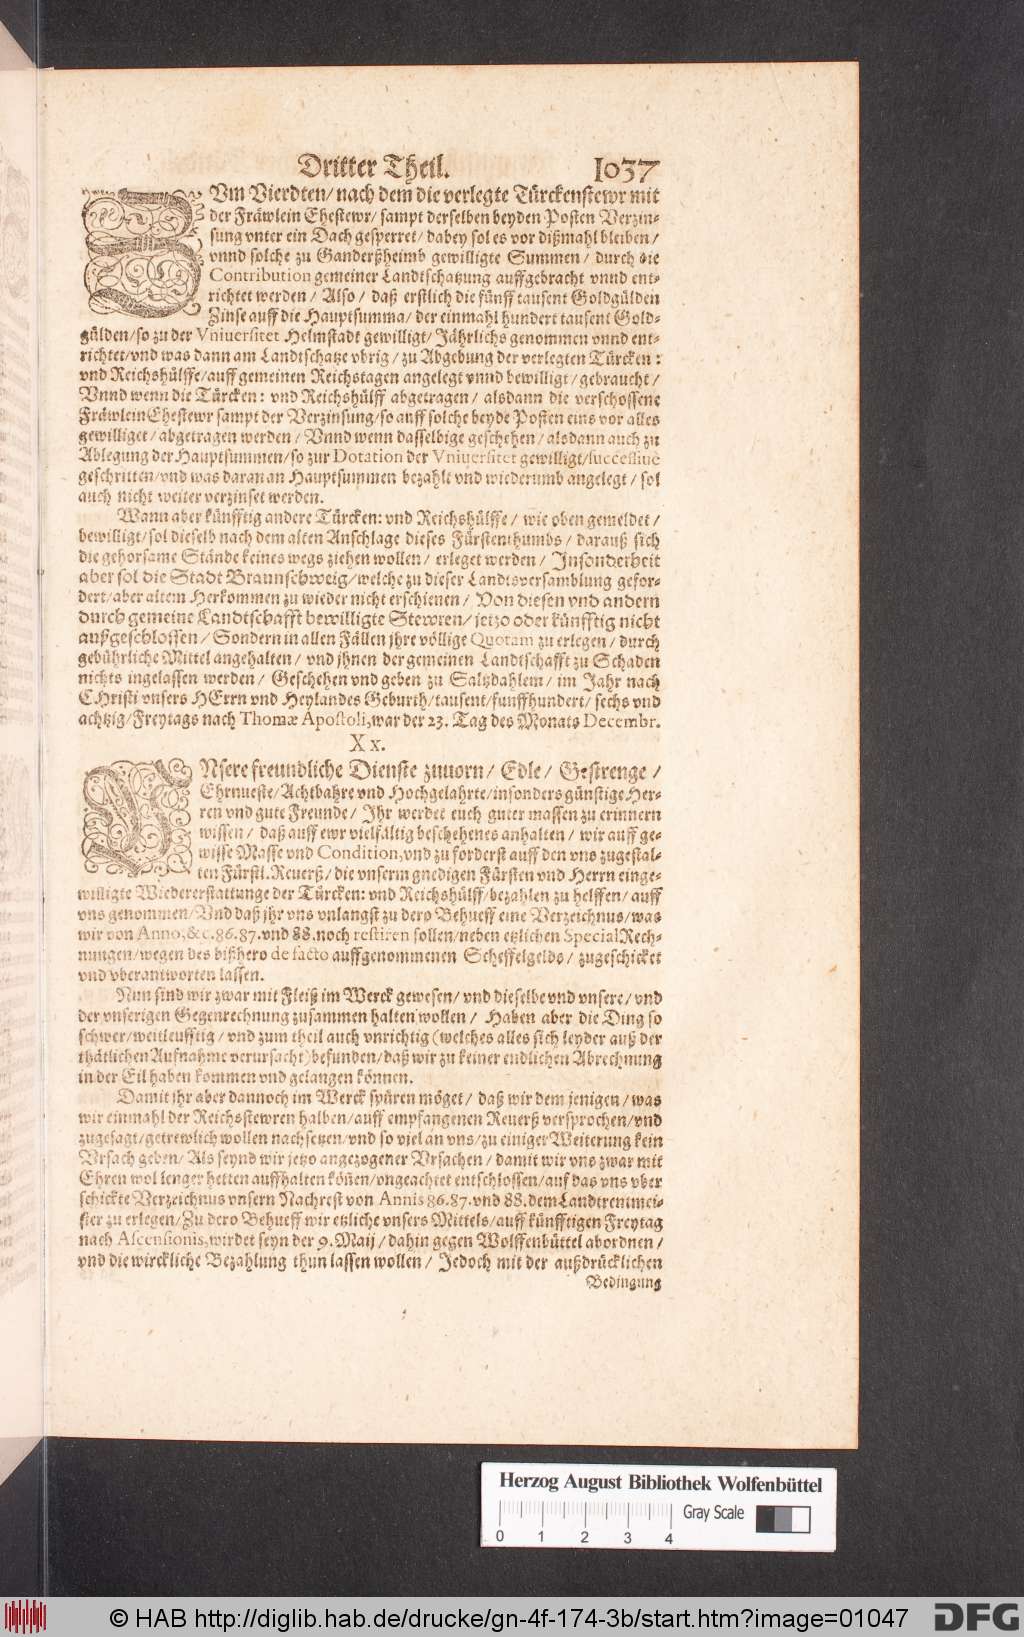 Dritter Theil. 1037
ZVm Vierdten/ nach dem die verlegte Türckenstewr mit
der Fräwlein Ehestewr/ sampt derselben beyden Posten Verzin-
sung vnter ein Dach gesperret/ dabey sol es vor dißmahl bleiben/
vnnd solche zu Ganderßheimb gewilligte Summen/ durch die
Contribution gemeiner Landtschatzung auffgebracht vnnd ent-
richtet werden/ Also/ daß erstlich die fünff tausent Goldgülden
Zinse auff die Hauptsumma/ der einmahl hundert tausent Gold-
gülden/so zu der Vniuersitet Helmstadt gewilligt/ Jährlichs genommen vnnd ent-
richtet/vnd was dann am Landtschatze vbrig/ zu Abgebung der verlegten Türcken:
vnd Reichshülffe/auff gemeinen Reichstagen angelegt vnnd bewilligt/ gebraucht/
Vnnd wenn die Türcken: vnd Reichshülff abgetragen/ alsdann die verschossene
Fräwlein Ehestewr sampt der Verzinsung/so auff solche beyde Posten eins vor alles
gewilliget/ abgetragen werden/ Vnnd wenn dasselbige geschehen/ alsdann auch zu
Ablegung der Hauptsummen/so zur Dotation der Vniuersitet gewilligt/successiuè
geschritten/vnd was daran an Hauptsummen bezahlt vnd wiederumb angelegt/ sol
auch nicht weiter verzinset werden.
Wann aber künfftig andere Türcken: vnd Reichshülffe/ wie oben gemeldet/
bewilligt/sol dieselb nach dem alten Anschlage dieses Fürstenthumbs/ darauß sich
die gehorsame Stände keines wegs ziehen wollen/ erleget werden/ Insonderheit
aber sol die Stadt Braunschweig/welche zu dieser Landtsversamblung gefor-
dert/aber altem Herkommen zu wieder nicht erschienen/ Von diesen vnd andern
durch gemeine Landtschafft bewilligte Stewren/ jetzo oder künfftig nicht
außgeschlossen/ Sondern in allen Fällen jhre völlige Quotam zu erlegen/ durch
gebührliche Mittel angehalten/ vnd jhnen der gemeinen Landtschafft zu Schaden
nichts ingelassen werden/ Geschehen vnd geben zu Saltzdahlem/ im Jahr nach
CHristi vnsers HErrn vnd Heylandes Geburth/tausent/funffhundert/ sechs vnd
achtzig/Freytags nach Thomæ Apostoli,war der 23. Tag des Monats Decembr.
Xx.
VNsere freundliche Dienste zuuorn/ Edle/ Gestrenge/
Ehrnueste/Achtbahre vnd Hochgelahrte/insonders günstige Her-
ren vnd gute Freunde/ Ihr werdet euch guter massen zu erinnern
wissen/ daß auff ewr vielfältig beschehenes anhalten/ wir auff ge-
wisse Masse vnd Condition,vnd zu forderst auff den vns zugestal-
ten Fürstl. Reuerß/ die vnserm gnedigen Fürsten vnd Herrn einge-
willigte Wiedererstattunge der Türcken: vnd Reichshülff/bezahlen zu helffen/ auff
vns genommen/Vnd daß jhr vns vnlangst zu dero Behueff eine Verzeichnus/was
wir von Anno,&c.86.87.vnd 88.noch restiren sollen/neben etzlichen Special Rech-
nungen/wegen des bißhero de facto auffgenommenen Scheffelgelds/ zugeschicket
vnd vberantworten lassen.
Nun sind wir zwar mit Fleiß im Werck gewesen/ vnd dieselbe vnd vnsere/ vnd
der vnserigen Gegenrechnung zusammen halten wollen/ Haben aber die Ding so
schwer/weitleufftig/ vnd zum theil auch vnrichtig (welches alles sich leyder auß der
thätlichen Aufnahme verursacht)befunden/daß wir zu keiner endlichen Abrechnung
in der Eil haben kommen vnd gelangen können.
Damit ihr aber dannoch im Werck spüren möget/ daß wir dem jenigen/ was
wir einmahl der Reichsstewren halben/auff empfangenen Reuerß versprochen/vnd
zugesagt/getrewlich wollen nachsetzen/vnd so viel an vns/zu einiger Weiterung kein
Vrsach geben/ Als seynd wir jetzo angezogener Vrsachen/ damit wir vns zwar mit
Ehren wol lenger hetten auffhalten köñen/vngeachtet entschlossen/auf das vns vber
schickte Verzeichnus vnsern Nachrest von Annis 86.87.vnd 88.dem Landtrentmei-
ster zu erlegen/Zu dero Behueff wir etzliche vnsers Mittels/auff künfftigen Freytag
nach Ascensionis,wirdet seyn der 9. Maij/ dahin gegen Wolffenbüttel abordnen/
vnd die wirckliche Bezahlung thun lassen wollen/ Jedoch mit der außdrücklichen
Bedingung
Herzog August Bibliothek Wolfenbüttel
Gray Scale
0 1 2 3 4
© HAB http://diglib.hab.de/drucke/gn-4f-174-3b/start.htm?image=01047
DFG